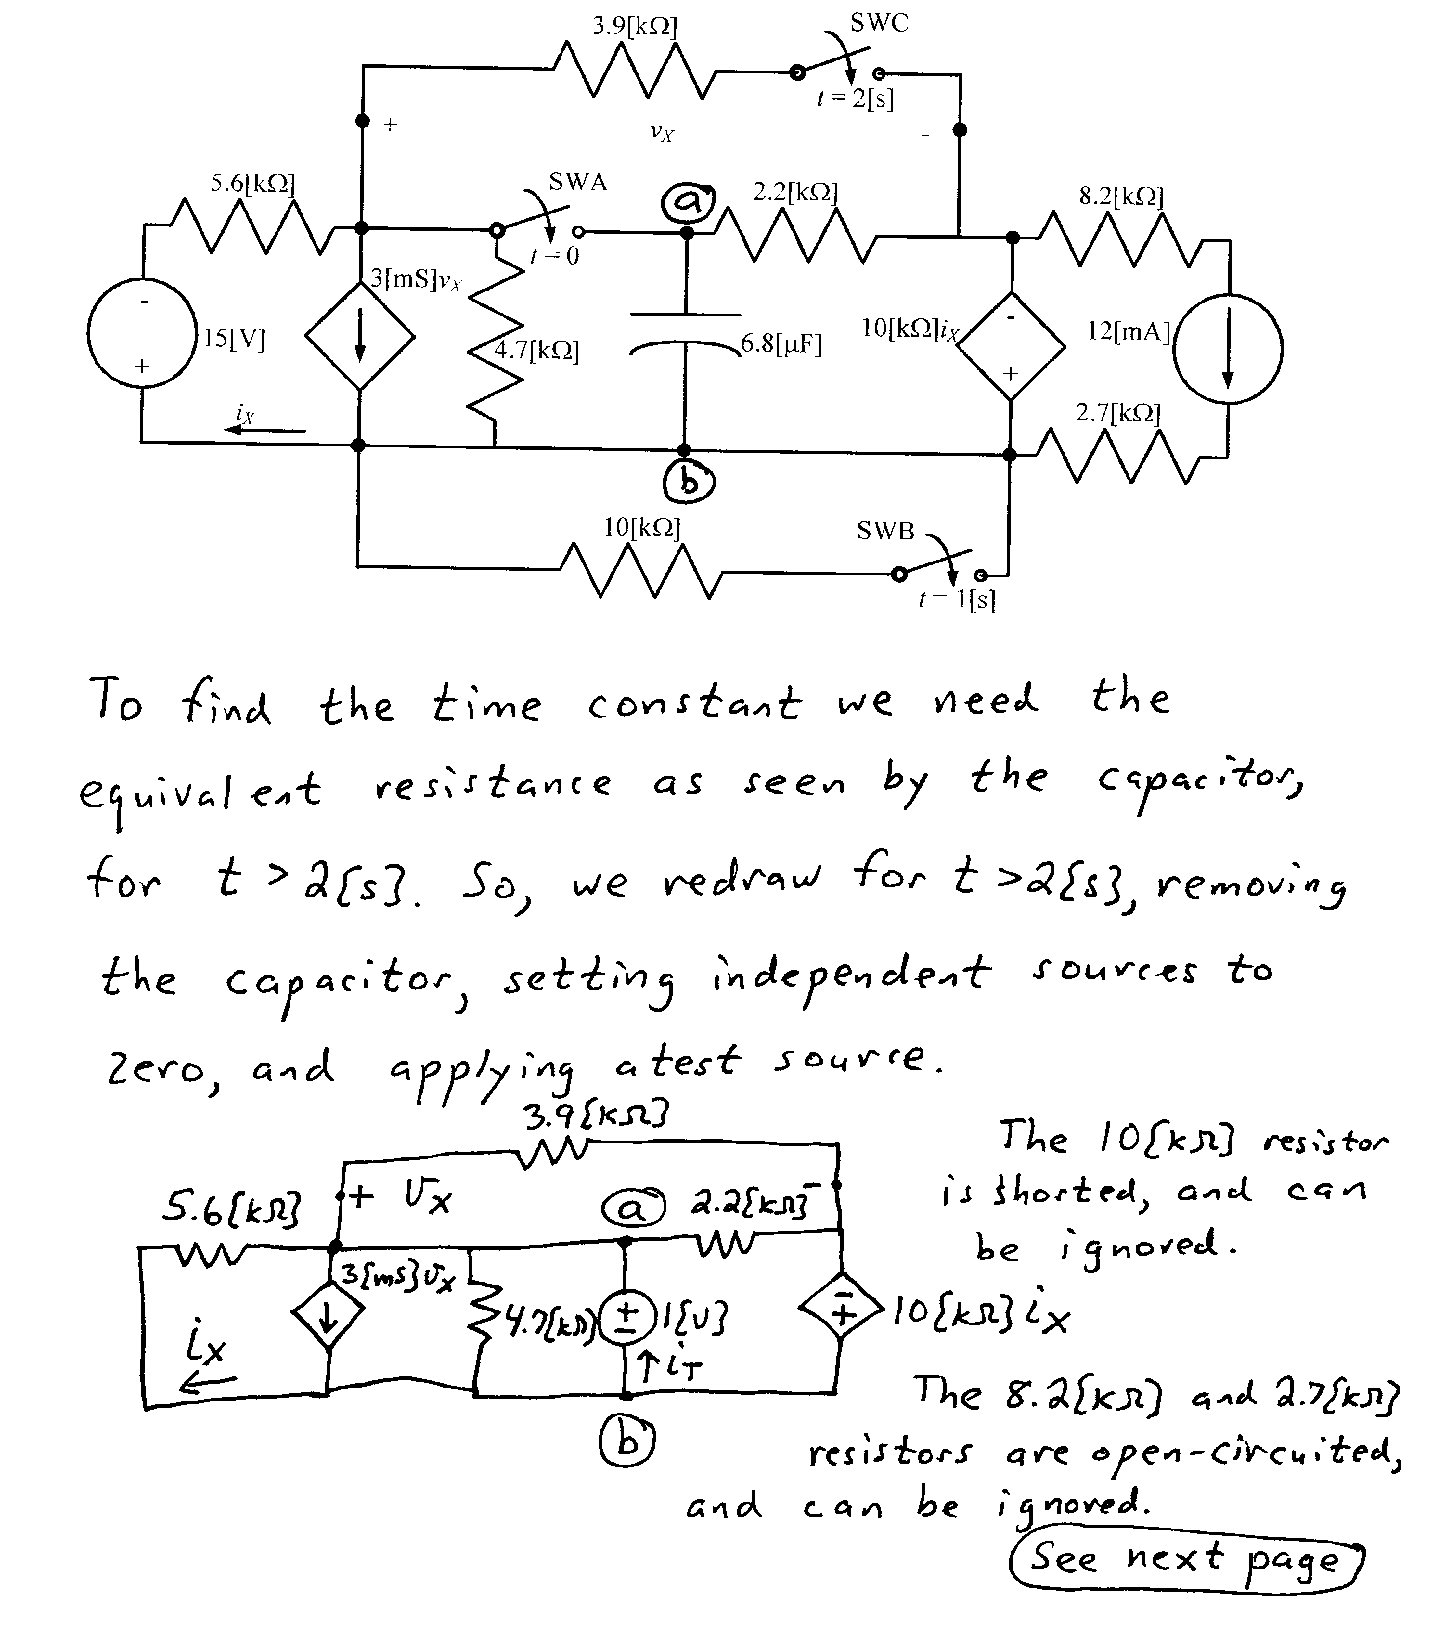 3.9[kΩ]
SWC
t = 2[s]
+
vX
-
5.6[kΩ]
SWA
a
2.2[kΩ]
8.2[kΩ]
t = 0
3[mS]vX
-
15[V]
+
4.7[kΩ]
6.8[µF]
10[kΩ]iX
-
+
12[mA]
iX
2.7[kΩ]
b
10[kΩ]
SWB
t = 1[s]
To find the time constant we need the
equivalent resistance as seen by the capacitor,
for t > 2[s]. So, we redraw for t > 2[s], removing
the capacitor, setting independent sources to
zero, and applying a test source.
3.9[kΩ]
The 10[kΩ] resistor
is shorted, and can
be ignored.
5.6[kΩ]
+ vX -
a
2.2[kΩ]
3[mS]vX
4.7[kΩ]
+
-
1[V]
-
+
10[kΩ]iX
iX
iT
b
The 8.2[kΩ] and 2.7[kΩ]
resistors are open-circuited,
and can be ignored.
See next page